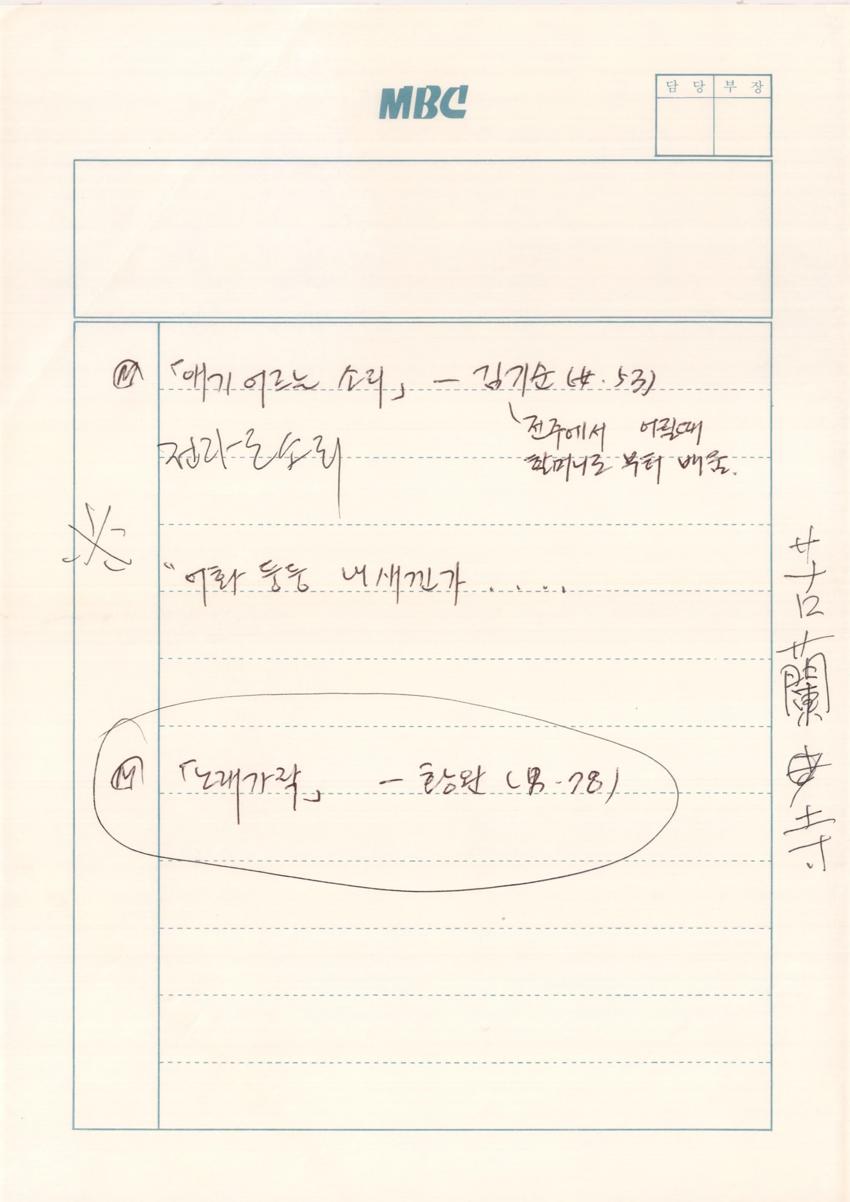 MBC
담 당 부 장
Ⓜ 「애기 어르는 소리」 — 김기순 (女. 53)
전주에서 어릴때
할머니로 부터 배움.
전라도소리
※
"어화 둥둥 내새낀가 .....
Ⓜ 「노래가락」 — 황완 (男. 78)
苦蘭寺